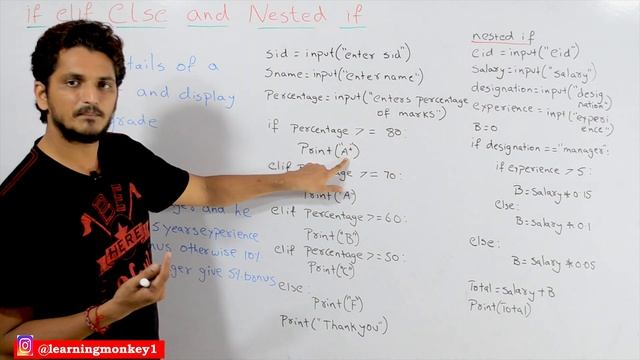 if elif Else and Nested if
tails of a
and display
grade
ger and he
5 years experience
nus otherwise 10%
ger give 5% bonus
sid = input("enter sid")
Sname = input("enter name")
Percentage = input("enters percentage
of marks")
if percentage >= 80:
Print("A+")
elif >= 70:
Print("A")
elif percentage >= 60:
Print("B")
elif percentage >= 50:
Print("C")
else:
Print("F")
Print("Thank you")
nested if
eid = input("eid")
Salary = input("salary")
designation = input("desig
nation")
experience = inpt("experi
ence")
B = 0
if designation == "manager":
if experience > 5:
B = Salary * 0.15
Else:
B = Salary * 0.1
else:
B = Salary * 0.05
Total = salary + B
Print(Total)
BE
HERE
@learningmonkey1